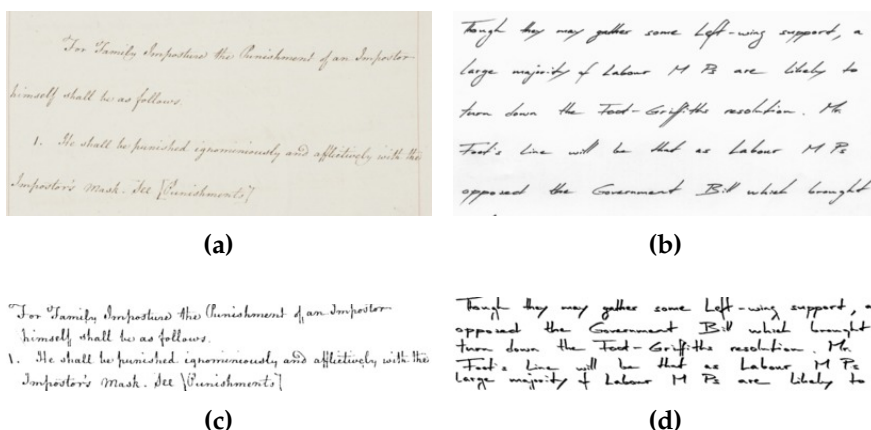 For Family Imposture the Punishment of an Impostor
himself shall be as follows.
1. He shall be punished ignominiously and afflictively with the
Impostor's Mask. See [Punishments]
(a)
Though they may gather some Left-wing support, a
large majority of Labour M Ps are likely to
turn down the Foot-Griffiths resolution. Mr.
Foot's Line will be that as Labour M Ps
opposed the Government Bill which brought
(b)
For Family Imposture the Punishment of an Impostor
himself shall be as follows.
1. He shall be punished ignominiously and afflictively with the
Impostor's Mask. See [Punishments]
(c)
Though they may gather some Left-wing support, a
opposed the Government Bill which brought
turn down the Foot-Griffiths resolution. Mr.
Foot's Line will be that as Labour M Ps
large majority of Labour M Ps are likely to
(d)